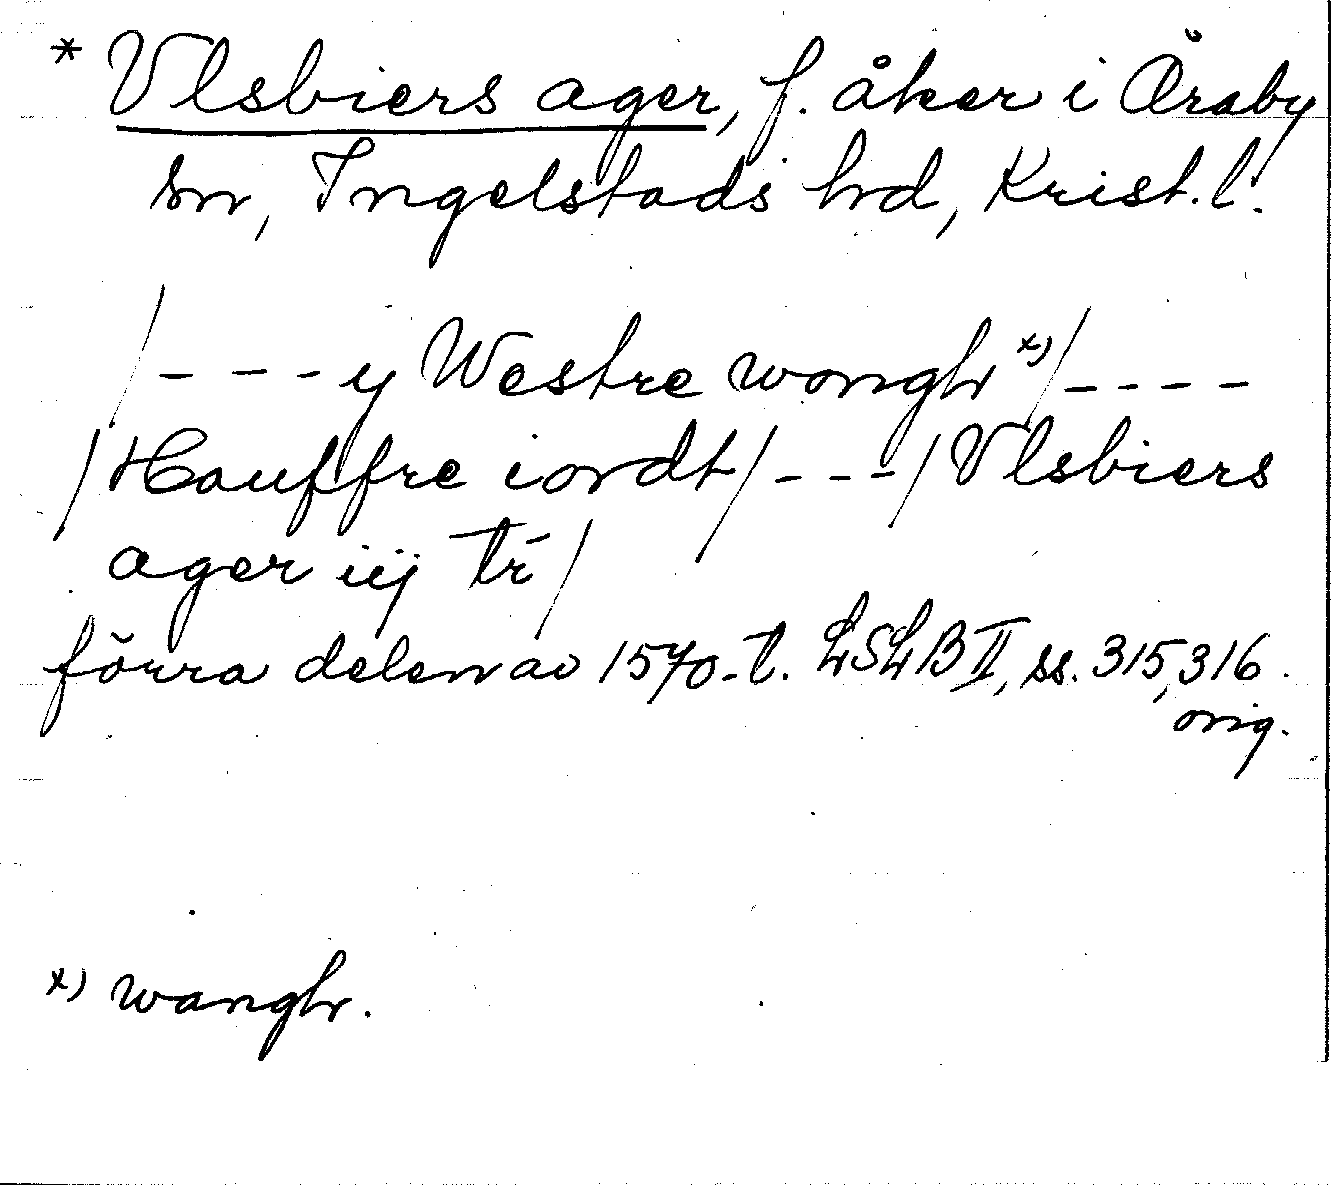 * Vlsbiers ager, f. åker i Öraby
sn, Ingelstads hd, Krist. l.
/- - - y Westre wongh x)/- - - -
/Hauffre iordt/- - -/Vlsbiers
ager iij tr/
förra delen av 1570-t. LSLB II, ss. 315, 316.
orig.
x) wangh.